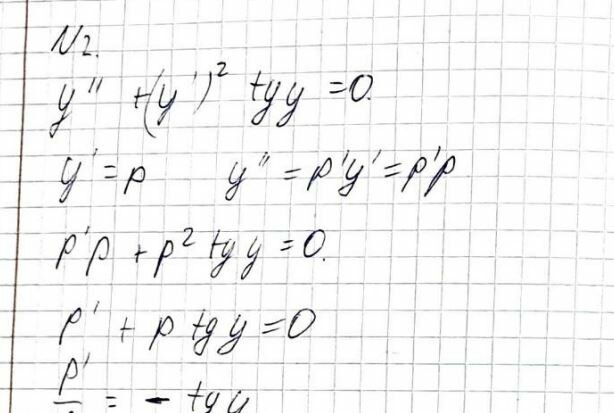 N2.
y'' + (y')² tg y = 0.
y' = p   y'' = p'y' = p'p
p'p + p² tg y = 0.
p' + p tg y = 0
p'/ = - tg y